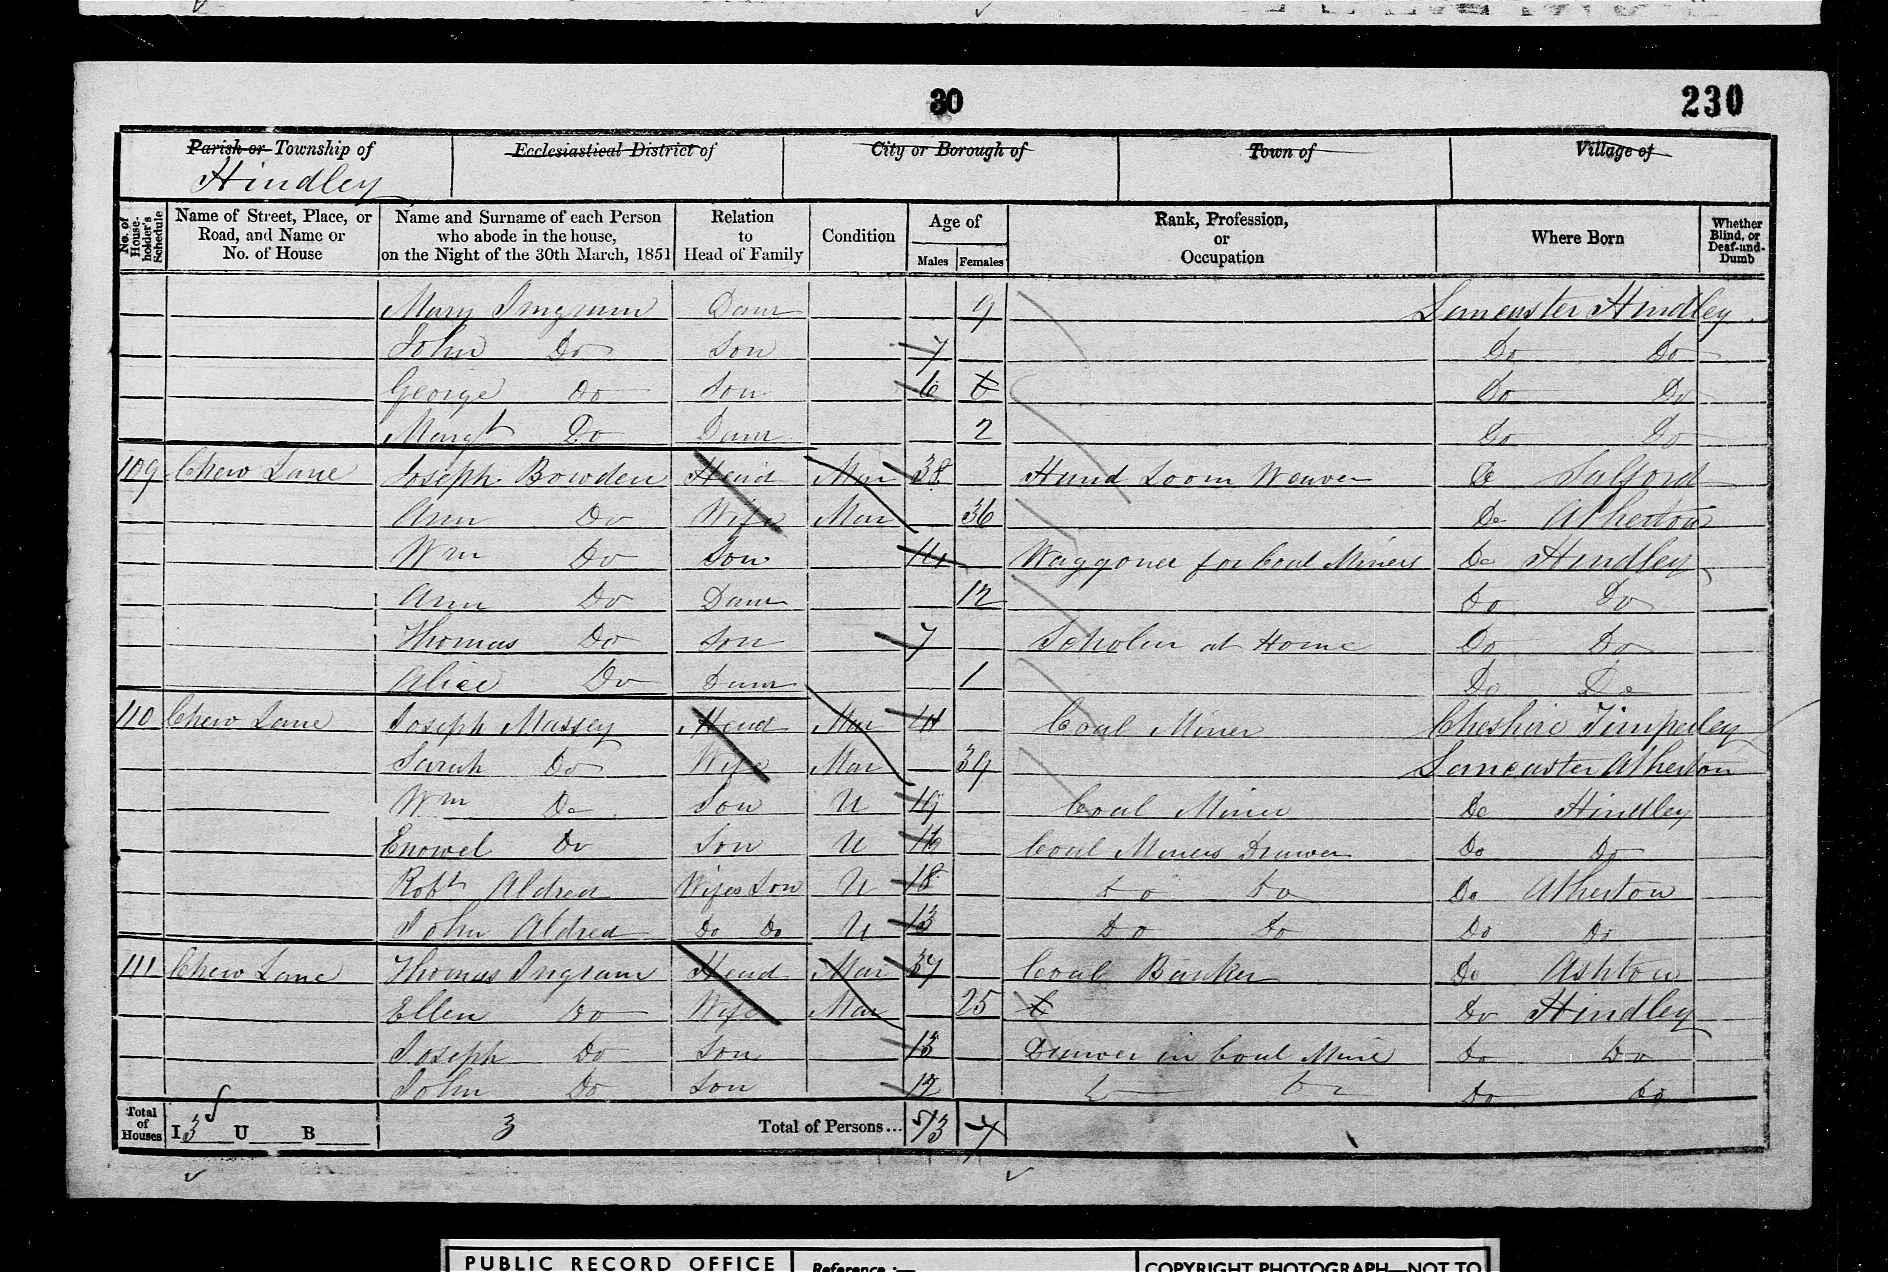 30
230
Parish or Township of Ecclesiastical District of City or Borough of Town of Village of
Hindley
No. of House-holder's Schedule Name of Street, Place, or Road, and Name or No. of House Name and Surname of each Person who abode in the house, on the Night of the 30th March, 1851 Relation to Head of Family Condition Age of Males Females Rank, Profession, or Occupation Where Born Whether Blind, or Deaf-and-Dumb
Mary Ingram Daur 9 Lancaster Hindley
John Do Son 7 Do Do
George Do Son 6 Do Do
Margt Do Daur 2 Do Do
109 Chew Lane Joseph Bowden Head Mar 38 Hand Loom Weaver Do Salford
Ann Do Wife Mar 36 Do Atherton
Wm Do Son 14 Waggoner for Coal Miners Do Hindley
Ann Do Daur 12 Do Do
Thomas Do Son 7 Scholar at Home Do Do
Alice Do Daur 1 Do Do
110 Chew Lane Joseph Massey Head Mar 41 Coal Miner Cheshire Timperley
Sarah Do Wife Mar 39 Lancaster Atherton
Wm Do Son U 19 Coal Miner Do Hindley
Do Son U 16 Coal Miners Drawer Do Do
Robt Aldred Wifes Son U 18 Do Do Do Atherton
John Aldred Do Do U 13 Do Do Do Do
111 Chew Lane Thomas Ingram Head Mar 37 Coal Banker Do Ashton
Ellen Do Wife Mar 25 Do Hindley
Joseph Do Son 13 Drawer in Coal Mine Do Do
John Do Son 12 Do Do Do Do
Total of Houses I 3 U B 3 Total of Persons... 13 7
PUBLIC RECORD OFFICE Reference :— COPYRIGHT PHOTOGRAPH—NOT TO